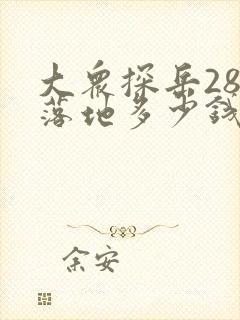 大众探岳28
落地多少钱
余安